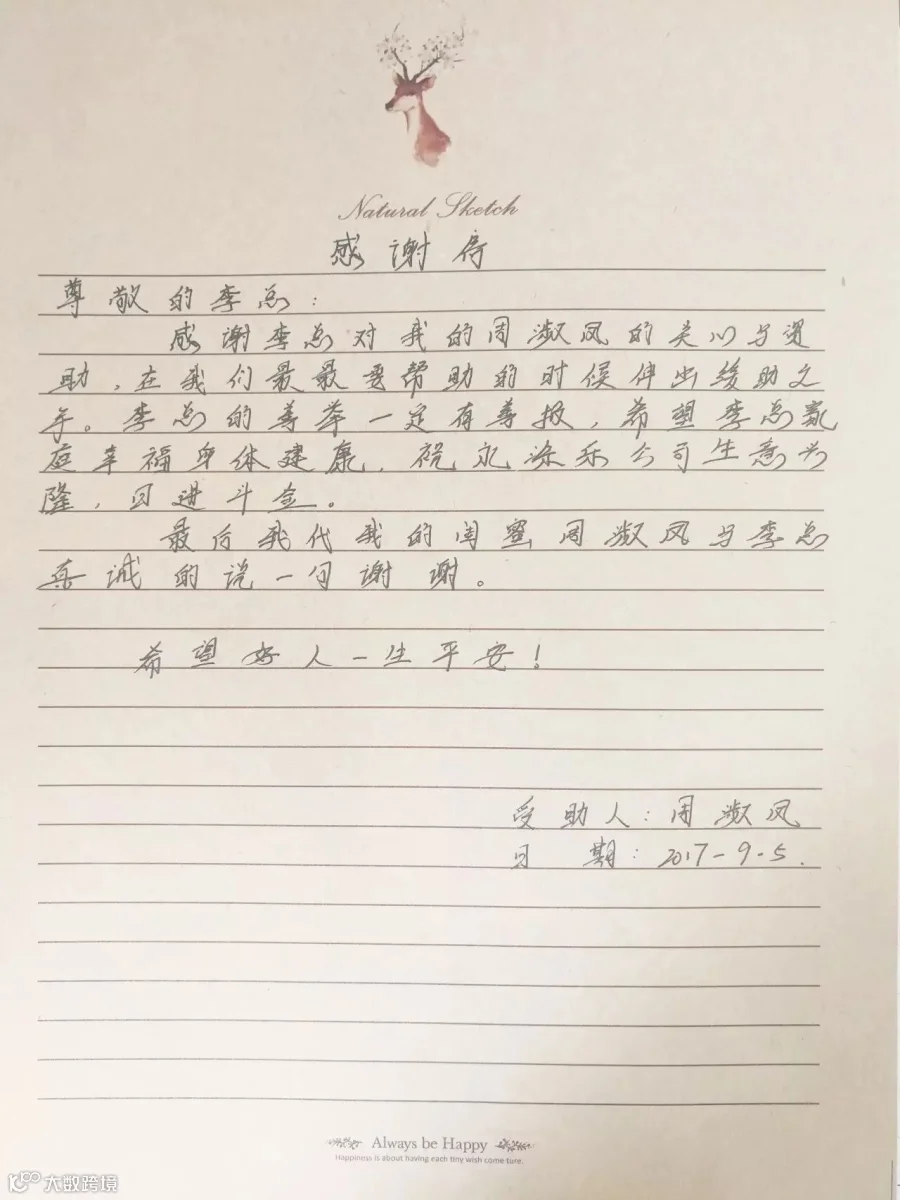 Natural Sketch
感谢信
尊敬的李总：
感谢李总对我的周淑凤的关心与资
助，在我们最最要帮助的时候伸出缓助之
手。李总的善举一定有善报，希望李总家
庭幸福身体建康，祝永添乐公司生意兴
隆，日进斗金。
最后我代我的闺蜜周淑凤与李总
真诚的说一句谢谢。
希望好人一生平安！
受助人：周淑凤
日期：2017-9-5.
Always be Happy
Happiness is about having each tiny wish come ture.
大数跨境